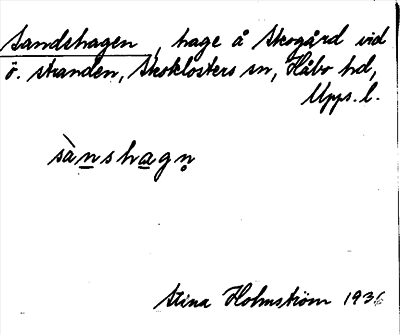 Sandehagen, hage å Skogård vid
ö. stranden, Skoklosters sn, Håbo hd,
Upps. l.
sànshagn̥
Stina Holmström 1936